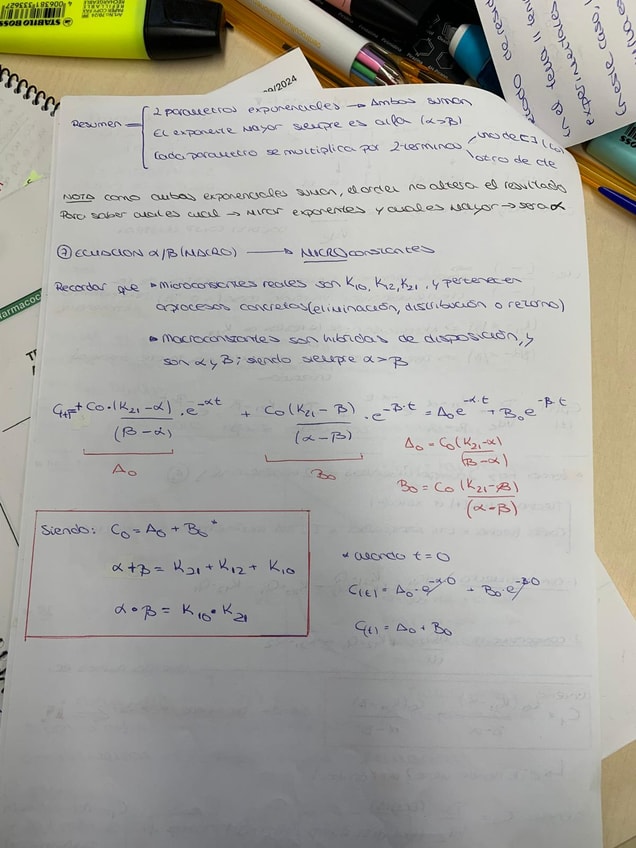 STABILO BOSS
09/2024
Resumen = 2 parametros exponenciales → Ambos suman
El exponente mayor siempre es alfa (α>β)
Cada parametro se multiplica por 2 terminos
uno de [ ] (C₀)
otro de cte
NOTA como ambas exponenciales suman, el orden no altera el resultado
Para saber cual es cual → mirar exponentes y cual es mayor → será α
⑦ ECUACION α/β (MACRO) → MICROconstantes
Recordar que • microconstantes reales son K₁₀, K₁₂, K₂₁, y pertenecen
a procesos concretos (eliminación, distribución o retorno)
• Macroconstantes son hibridas de disposición, y
son α y β; siendo siempre α>β
C₀·(K₂₁-α)/(β-α) · e^-αt + C₀(K₂₁-β)/(α-β) · e^-β·t = A₀e^-α·t + B₀e^-β·t
A₀ B₀
A₀ = C₀(K₂₁-α)/(β-α)
B₀ = C₀(K₂₁-β)/(α-β)
Siendo: C₀ = A₀ + B₀*
α + β = K₂₁ + K₁₂ + K₁₀
α • β = K₁₀ • K₂₁
* cuando t=0
C(t) = A₀·e^-α·0 + B₀·e^-β·0
C(t) = A₀ + B₀